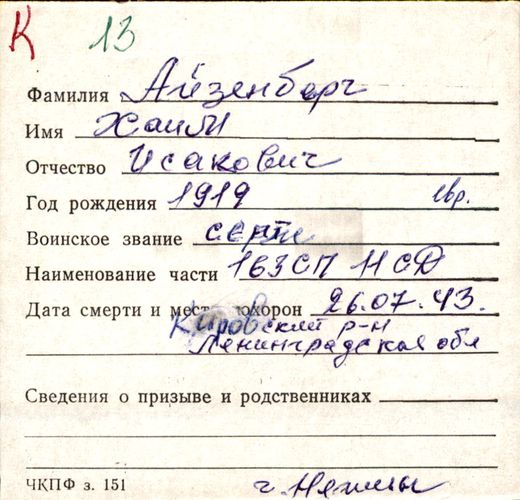 К 13
Фамилия Айзенберг
Имя Хаим
Отчество Исакович
Год рождения 1919 евр.
Воинское звание серж
Наименование части 163СП 11СД
Дата смерти и мест похорон 26.07.43.
Кировский р-н
Ленинградская обл
Сведения о призыве и родственниках
ЧКПФ з. 151